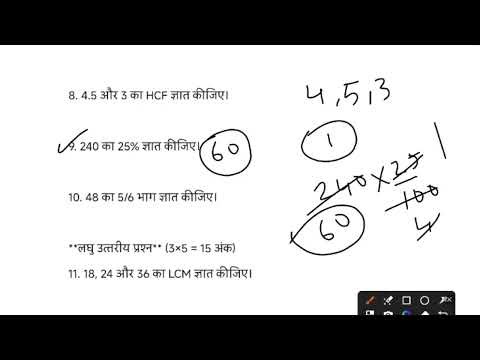 8. 4.5 और 3 का HCF ज्ञात कीजिए।
4,5,3
1
9. 240 का 25% ज्ञात कीजिए।
60
240 × 25
100
4
1
60
10. 48 का 5/6 भाग ज्ञात कीजिए।
**लघु उत्तरीय प्रश्न** (3×5 = 15 अंक)
11. 18, 24 और 36 का LCM ज्ञात कीजिए।